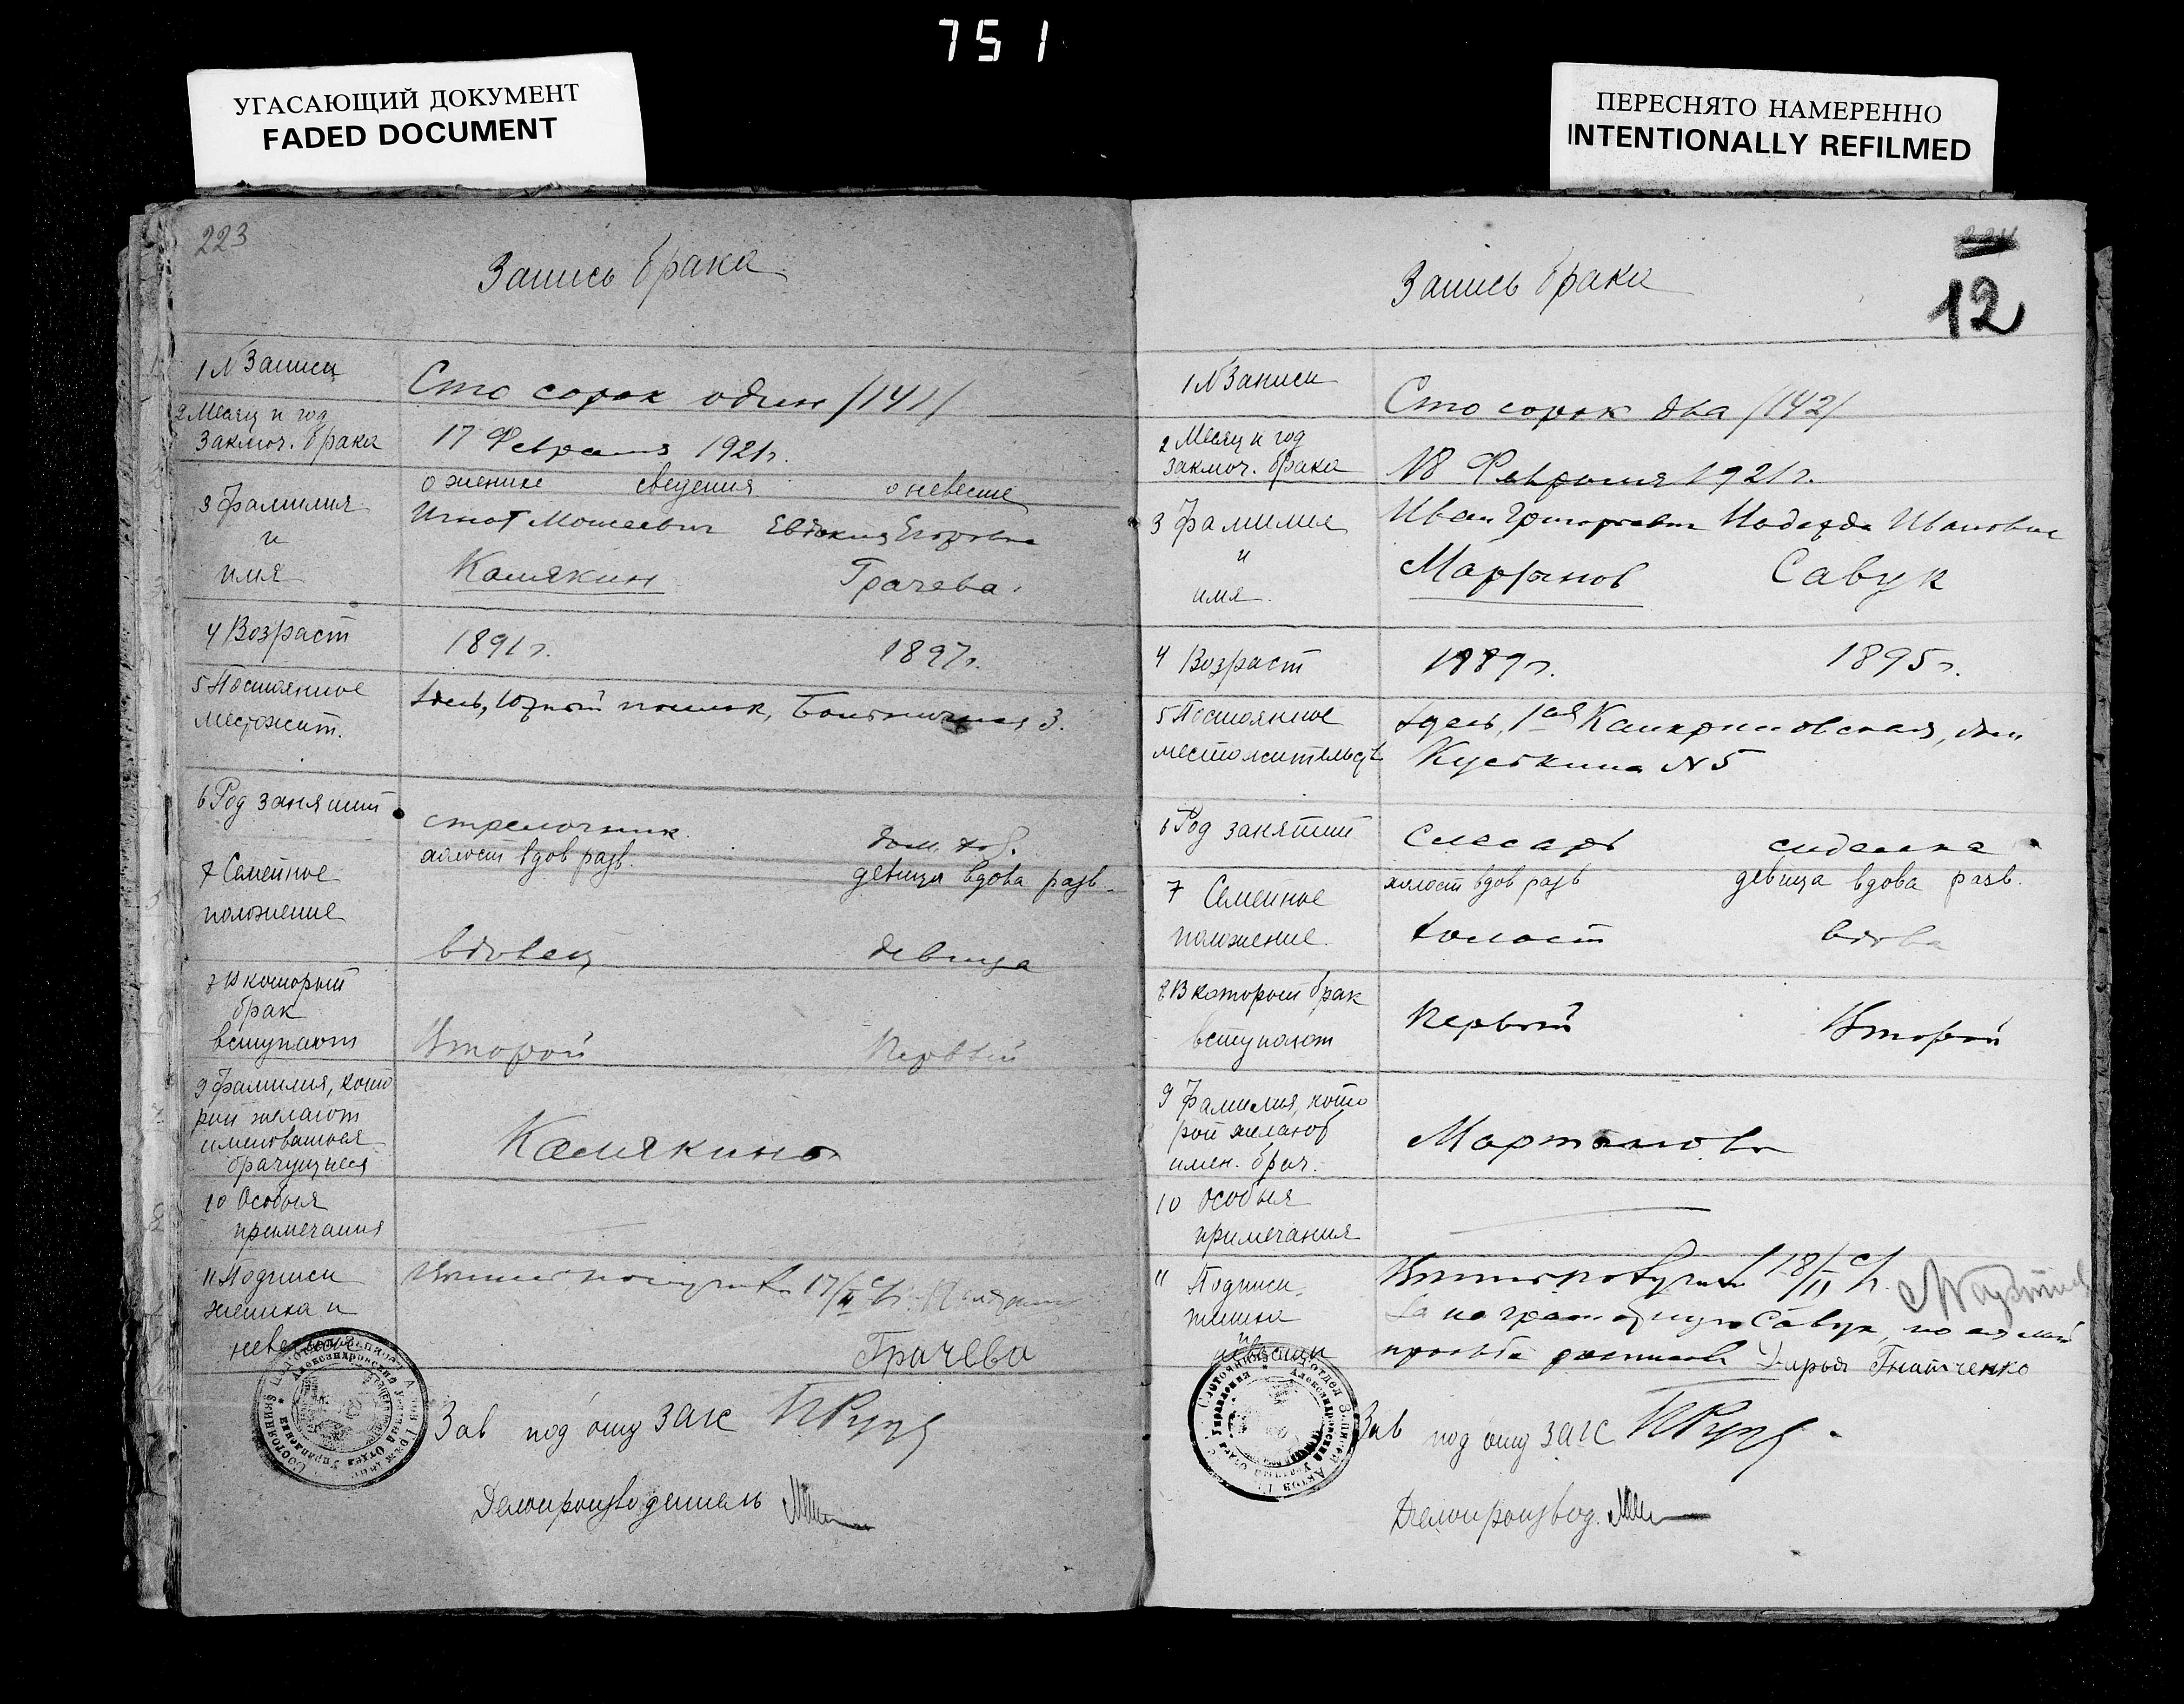 751
УГАСАЮЩИЙ ДОКУМЕНТ
FADED DOCUMENT
ПЕРЕСНЯТО НАМЕРЕННО
INTENTIONALLY REFILMED
223
Запись брака
1 N Записи
Сто сорок один /141/
2 Месяц и год
заключ. брака
17 Февраля 1921 г.
о женихе сведения о невесте
3 Фамилия
и
имя
Игнат Моисеевич Евдокия Егоровна
Калякин Грачева.
4 Возраст
1891 г. 1897 г.
5 Постоянное
местожит.
Здесь, Южный поселок, Больничная 3.
6 Род занятий
стрелочник дом. хоз.
7 Семейное
положение
холост вдов разв. девица вдова разв.
вдовец девица
В который
брак
вступают
Второй Первый
9 Фамилия, кото
рой желают
именоваться
брачущиеся
Калякины
10 Особыя
примечания
11 Подписи
жениха и
невесты
17/II
Грачева
Зав под'отд ЗАГС
Делопроизводитель
12
Запись брака
1 N Записи
Сто сорок два /142/
2 Месяц и год
заключ. брака
18 Февраля 1921 г.
3 Фамилия
и
имя
Иван Григорьевич Надежда Ивановна
Мартынов Савук
4 Возраст
1889 г. 1895 г.
5 Постоянное
местожительств
Здесь, 1ая
N 5
6 Род занятий
Слесарь сиделка
7 Семейное
положение
холост вдов разв девица вдова разв.
холост вдова
8 В который брак
вступают
Первый Второй
9 Фамилия, кото
рой желают
имен. брач.
Мартыновы
10 Особыя
примечания
11 Подписи
жениха
и
невесты
18/II
За неграмотную Савук, по ея личной
просьбе Дарья Гнатченко
Зав под'отд ЗАГС
Делопроизвод.